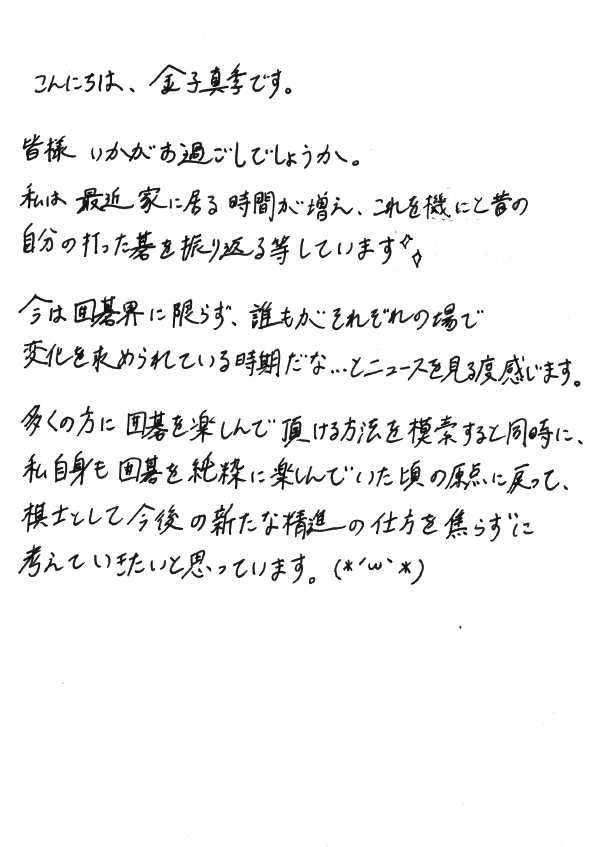 こんにちは、金子真季です。
皆様 いかがお過ごしでしょうか。
私は 最近 家に居る 時間が増え、これを機にと昔の
自分の打った碁を振り返る等しています✧
今は囲碁界に限らず、誰もがそれぞれの場で
変化を求められている時期だな...とニュースを見る度感じます。
多くの方に 囲碁を楽しんで 頂ける方法を模索すると同時に、
私自身も 囲碁を純粋に楽しんでいた頃の原点に戻って、
棋士として 今後の新たな精進の仕方を焦らずに
考えていきたいと思っています。(*´ω`*)